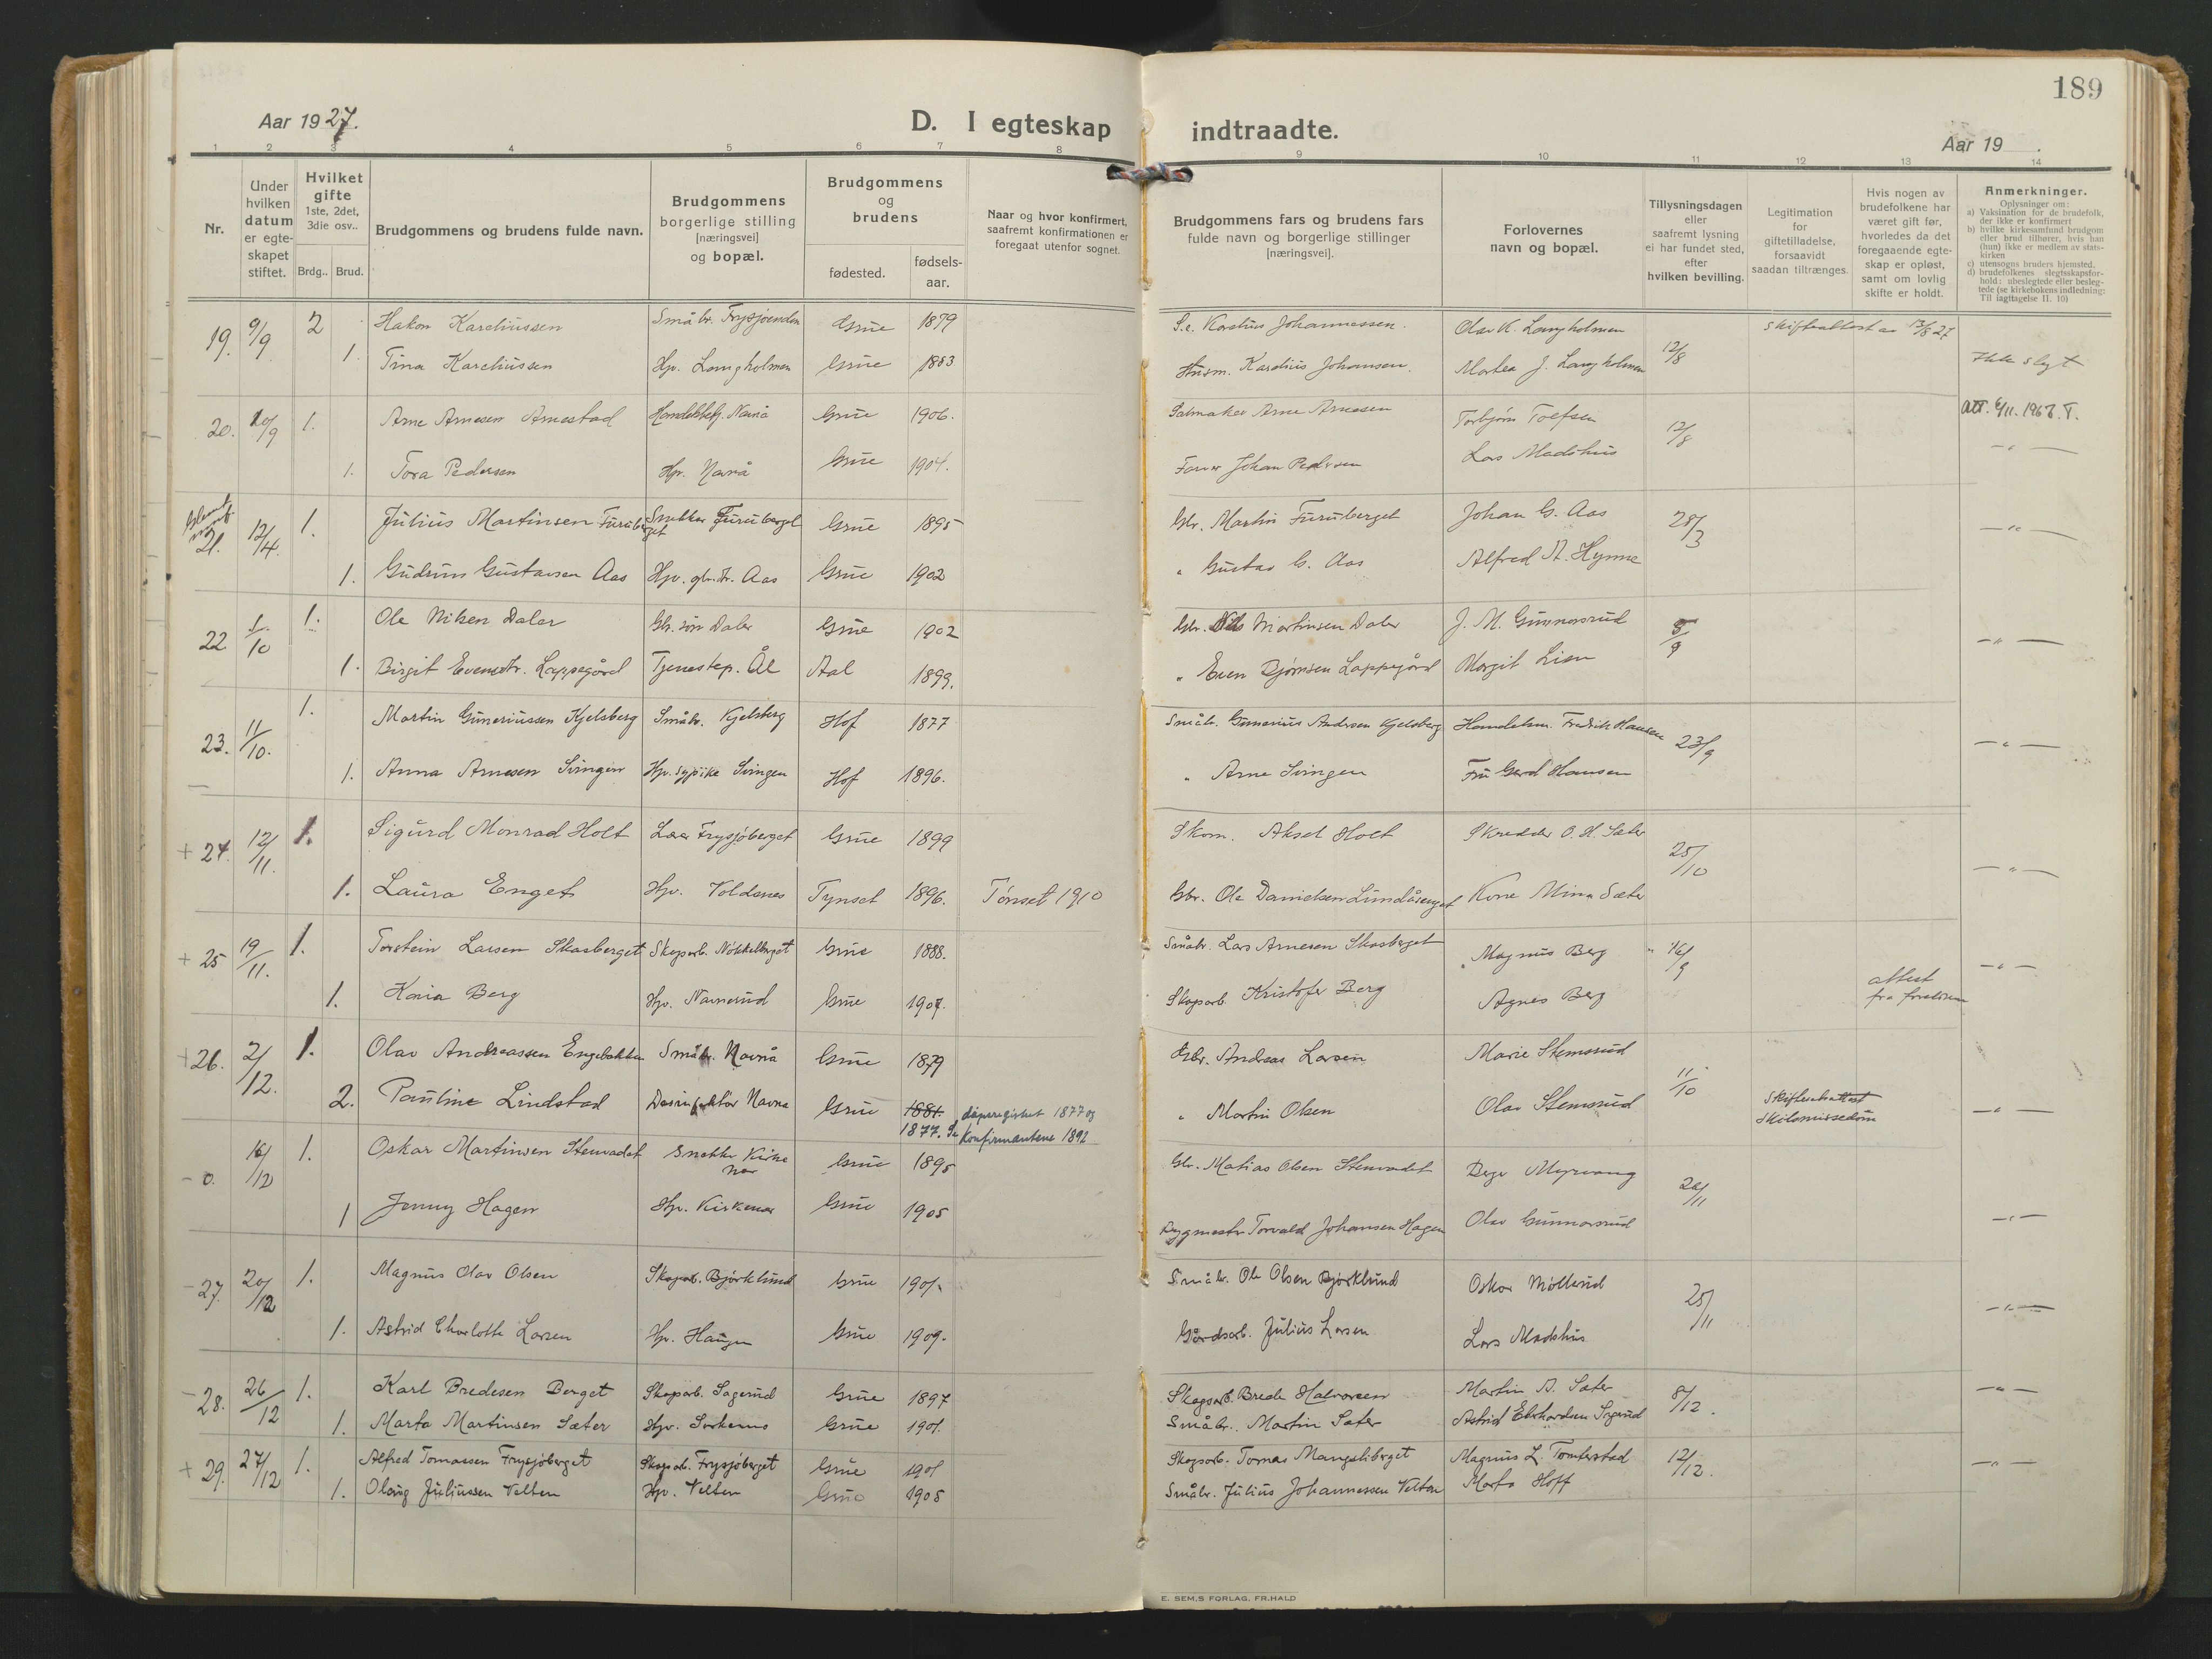 189
Aar 1927.
D. I egteskap indtraadte.
Aar 19 .
1 2 3 4 5 6 7 8 9 10 11 12 13 14
Nr.
Under hvilken datum er egteskapet stiftet.
Hvilket gifte 1ste, 2det, 3die osv..
Brdg.. Brud.
Brudgommens og brudens fulde navn.
Brudgommens borgerlige stilling [næringsvei] og bopæl.
Brudgommens og brudens
fødested.
fødselsaar.
Naar og hvor konfirmert, saafremt konfirmationen er foregaat utenfor sognet.
Brudgommens fars og brudens fars fulde navn og borgerlige stillinger [næringsvei].
Forlovernes navn og bopæl.
Tillysningsdagen eller saafremt lysning ei har fundet sted, efter hvilken bevilling.
Legitimation for giftetilladelse, forsaavidt saadan tiltrænges.
Hvis nogen av brudefolkene har været gift før, hvorledes da det foregaaende egteskap er opløst, samt om lovlig skifte er holdt.
Anmerkninger.
Oplysninger om:
a) Vaksination for de brudefolk, der ikke er konfirmert
b) hvilke kirkesamfund brudgom eller brud tilhører, hvis han (hun) ikke er medlem av statskirken
c) utensogns bruders hjemsted.
d) brudefolkenes slegtsskapsforhold: ubeslegtede eller beslegtede (se kirkebokens indledning: Til iagttagelse II. 10)
19. 9/9 2 Hakon Kareliussen Småbr. Frysjøenden Grue 1879 S.e. Karelius Johannessen. Olav K. Langholmen 12/8 Skifteattest av 13/8 27
1. Tina Kareliussen Hp. Langholmen Grue 1883 Husm. Karelius Johansen. Martea J. Langholmen Ikke slegt
20. 10/9 1. Arne Arnesen Arnestad Handelsbetj. Namnå Grue 1906. Salmaker Arne Arnesen Torbjørn Tollefsen 12/8 att. 6/11. 1967. T.
1. Tora Pedersen Hp. Namnå Grue 1904. Farver Johan Pedersen Lars Madshus — " —
21. 12/4. 1. Julius Martinsen Furuberget Snekker Furuberget Grue 1895 Gbr. Martin Furuberget Johan G. Aas 28/3 — " —
1. Gudrun Gustavsen Aas Hp. gbr.dtr. Aas Grue 1902 " Gustav G. Aas Alfred A. Hynne
22 1/10 1. Ole Nilsen Daler Gbr. søn Daler Grue 1902 Gbr. Nils Martinsen Daler J. M. Gunnarsrud 8/9 — " —
1. Birgit Evensdtr. Lappegård Tjenestep. Ål Aal 1899. " Even Bjørnsen Lappegård Margit Lien
23. 11/10. 1. Martin Guneriussen Kjelsberg Småbr. Kjelsberg Hof 1877 Småbr. Gunerius Andersen Kjelsberg Handelsm. Fredrik Hansen 23/9 — " —
1. Anna Arnesen Svingen Hp. sypike Svingen Hof 1896. " Arne Svingen Fru Gerd Hansen
+ 24. 12/11. 1. Sigurd Monrad Holt Lærer Frysjøberget Grue 1899 Skom. Aksel Holt Skredder O. H. Sæter 25/10 — " —
1. Laura Enget Hp. Voldenes Tynset 1896. Tønset 1910 Gbr. Ole Danielsen Lundåsenget Kone Mina Sæter
+ 25 19/11. 1. Torstein Larsen Skasberget Skogsarb. Nøkkelberget Grue 1888. Småbr. Lars Arnesen Skasberget " Magnus Berg " 16/9 — " —
1. Karia Berg Hp. Namnerud Grue 1907. Skogsarb. Kristofer Berg Agnes Berg attest fra
+26. 2/12. 1. Olav Andreassen Engebakken Småbr. Namnå Grue 1879 Gbr. Andreas Larsen Marie Stemsrud 11/10
2. Pauline Lindstad Desinfektør Namnå Grue 1881. 1877. Se dåpsregistret 1877 og konfirmantene 1892 " Martin Olsen Olav Stemsrud Skifteattest Skilsmissedom — " —
- 0. 16/12 1. Oskar Martinsen Stenvadet Snekker Kirkenær Grue 1895 Gbr. Matias Olsen Stenvadet Berge Myrvang 20/11
1 Jenny Hagen Hp. Kirkenær Grue 1905 Bygmestr. Torvald Johansen Hagen Olav Gunnarsrud — " —
- 27. 20/12 1. Magnus Olav Olsen Skogsarb. Bjørklund Grue 1901. Småbr. Ole Olsen Bjørklund Oskar Møllerud 25/11 — " —
1. Astrid Charlotte Larsen Hp. Haugen Grue 1909. Gårdsarb. Julius Larsen Lars Madshus
- 28. 26/12 1. Karl Bredesen Berget Skogsarb. Sagerud Grue 1897 Skogsarb. Brede Halvorsen Martin A. Sæter 8/12. — " —
1. Marta Martinsen Sæter Hp. Sverkenes Grue 1901. Småbr. Martin Sæter Astrid Ekhardsen Sagerud
+ 29. 27/12 1. Alfred Tomassen Frysjøberget Skogsarb. Frysjøberget Grue 1901 Skogsarb. Tomas Mangsliberget Magnus L. Tomterstad 12/12. — " —
1. Olaug Juliussen Velten Hp. Velten Grue 1905 Småbr. Julius Johannessen Velten Marta Hoff
E. SEM,S FORLAG, FR.HALD